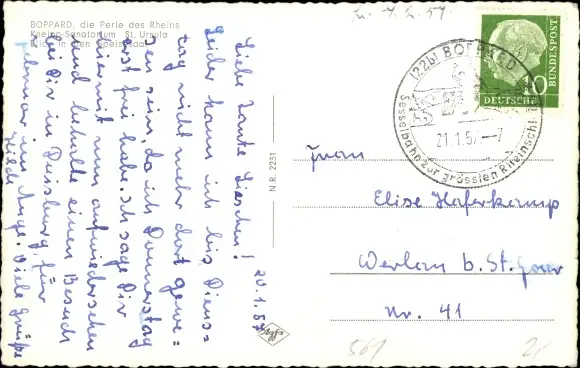 BOPPARD, die Perle des Rheins
Kneipp-Sanatorium St. Ursula
Blick in den Speisesaal
20.1.57
Liebe Tante Lieschen!
Leider kann ich bis Diens=
tag nicht mehr dort gewe=
sen sein, da ich Donnerstag
erst frei habe. Ich sage Dir
hiermit nun aufwiedersehen
und behalte einen Besuch
bei Dir in Duisburg, für
Februar im Auge. Viele Grüße
N.R. 2231
Agfa
(22b) BOPPARD
21.1.57 - 7
Sesselbahn zur grössten Rheinschl
10
DEUTSCHE
BUNDESPOST
Frau
Elise Haferkamp
Werlau b. St. Goar
Nr. 41
561